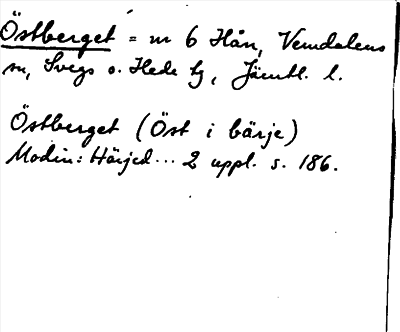 Östberget = m 6 Hån, Vemdalens
sn, Svegs o. Hede tg, Jämtl. l.
Östberget (Öst i bärje)
Modin: Härjed... 2 uppl. s. 186.